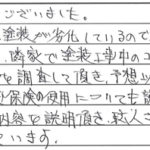 ございました。
塗装が劣化しているので
隣家で塗装工事の
を調査して頂き、予想
保険の使用についても
内容を説明頂き、
います。